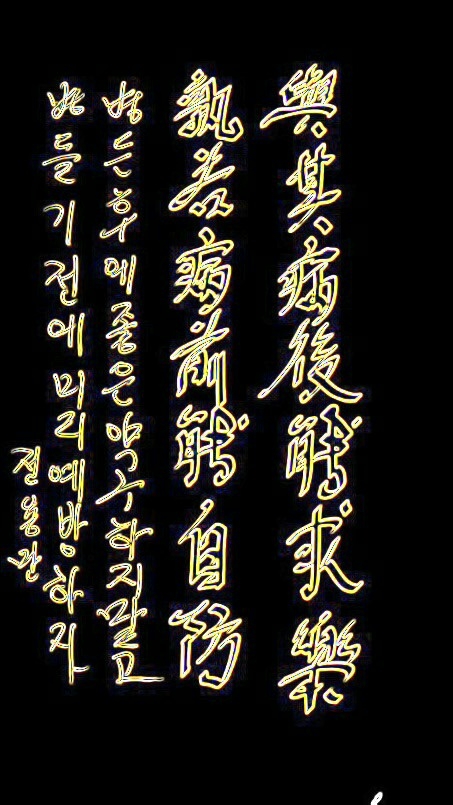 與其病後能求藥
孰若病前能自防
병든후에좋은약구하지말고
병들기전에미리예방하자